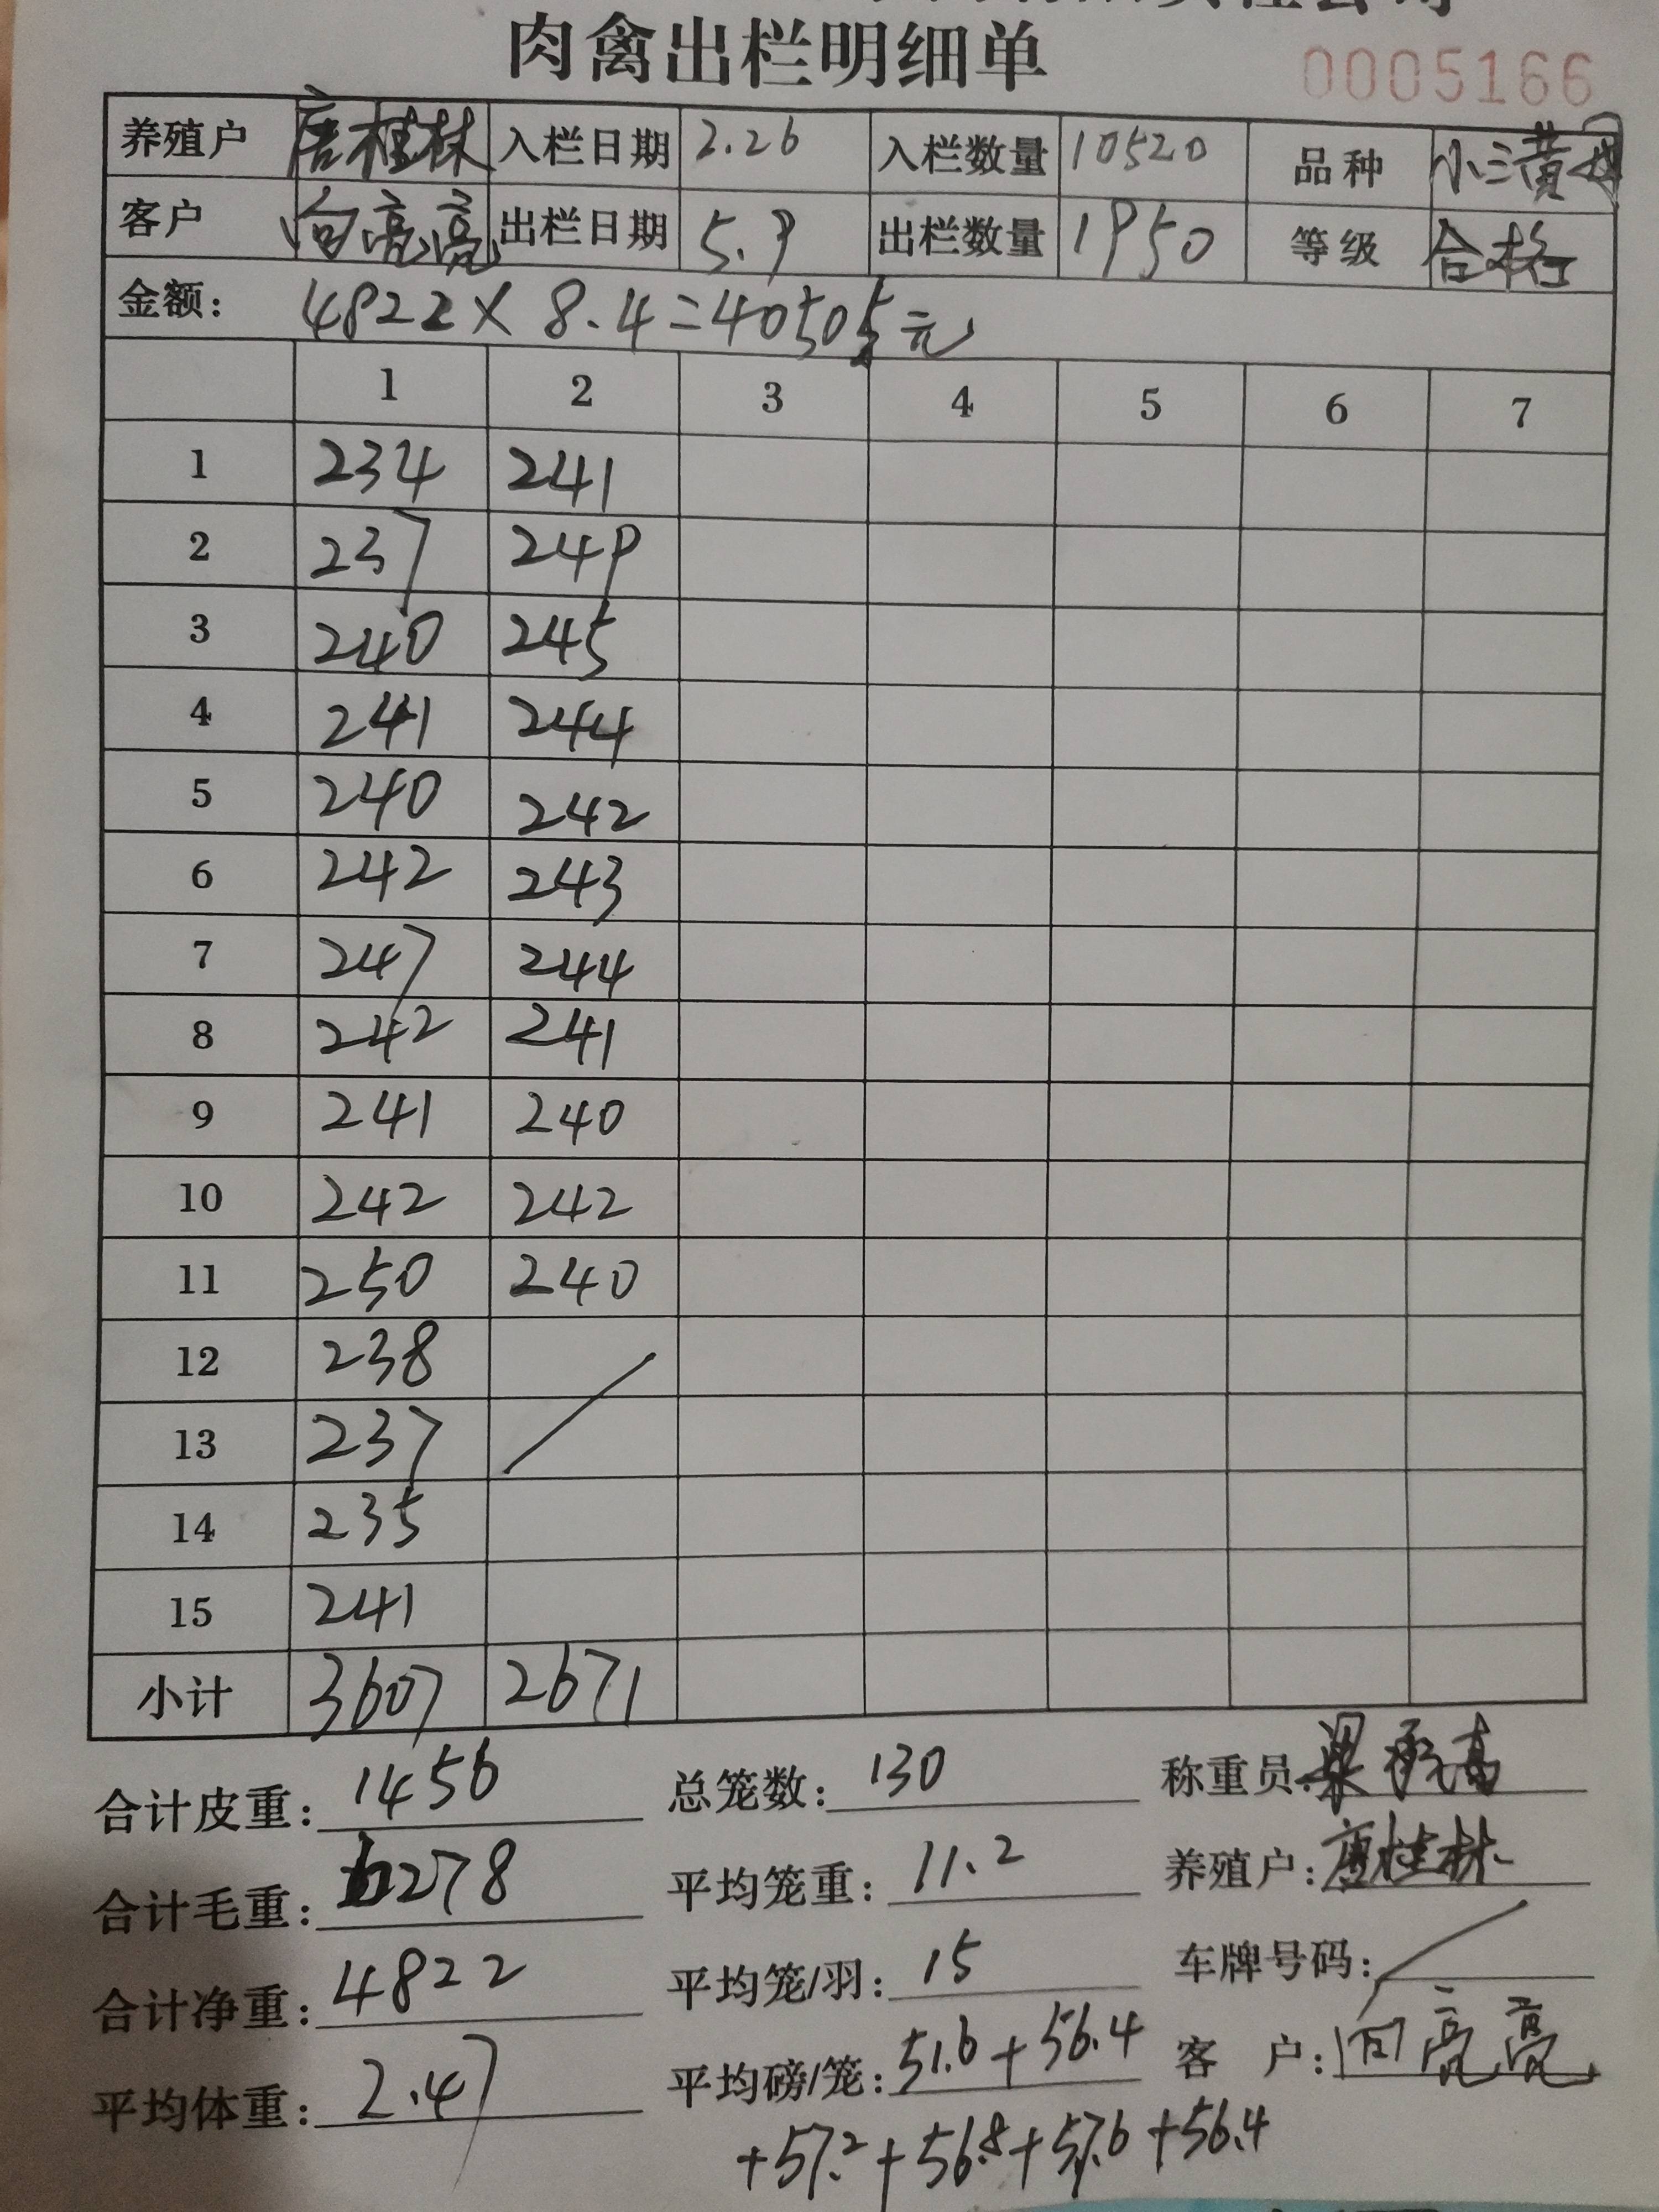 肉禽出栏明细单
0005166
养殖户 唐桂林 入栏日期 2.26 入栏数量 10520 品种 小三黄母
客户 向亮亮 出栏日期 5.9 出栏数量 1950 等级 合格
金额: 4822×8.4=40505元
1 2 3 4 5 6 7
1 234 241
2 237 249
3 240 245
4 241 244
5 240 242
6 242 243
7 247 244
8 242 241
9 241 240
10 242 242
11 250 240
12 238
13 237
14 235
15 241
小计 3607 2671
合计皮重: 1456 总笼数: 130 称重员: 梁承高
合计毛重: 6278 平均笼重: 11.2 养殖户: 唐桂林
合计净重: 4822 平均笼/羽: 15 车牌号码:
平均体重: 2.47 平均磅/笼: 51.6+56.4 客户: 向亮亮
+57.2+56.8+57.6+56.4